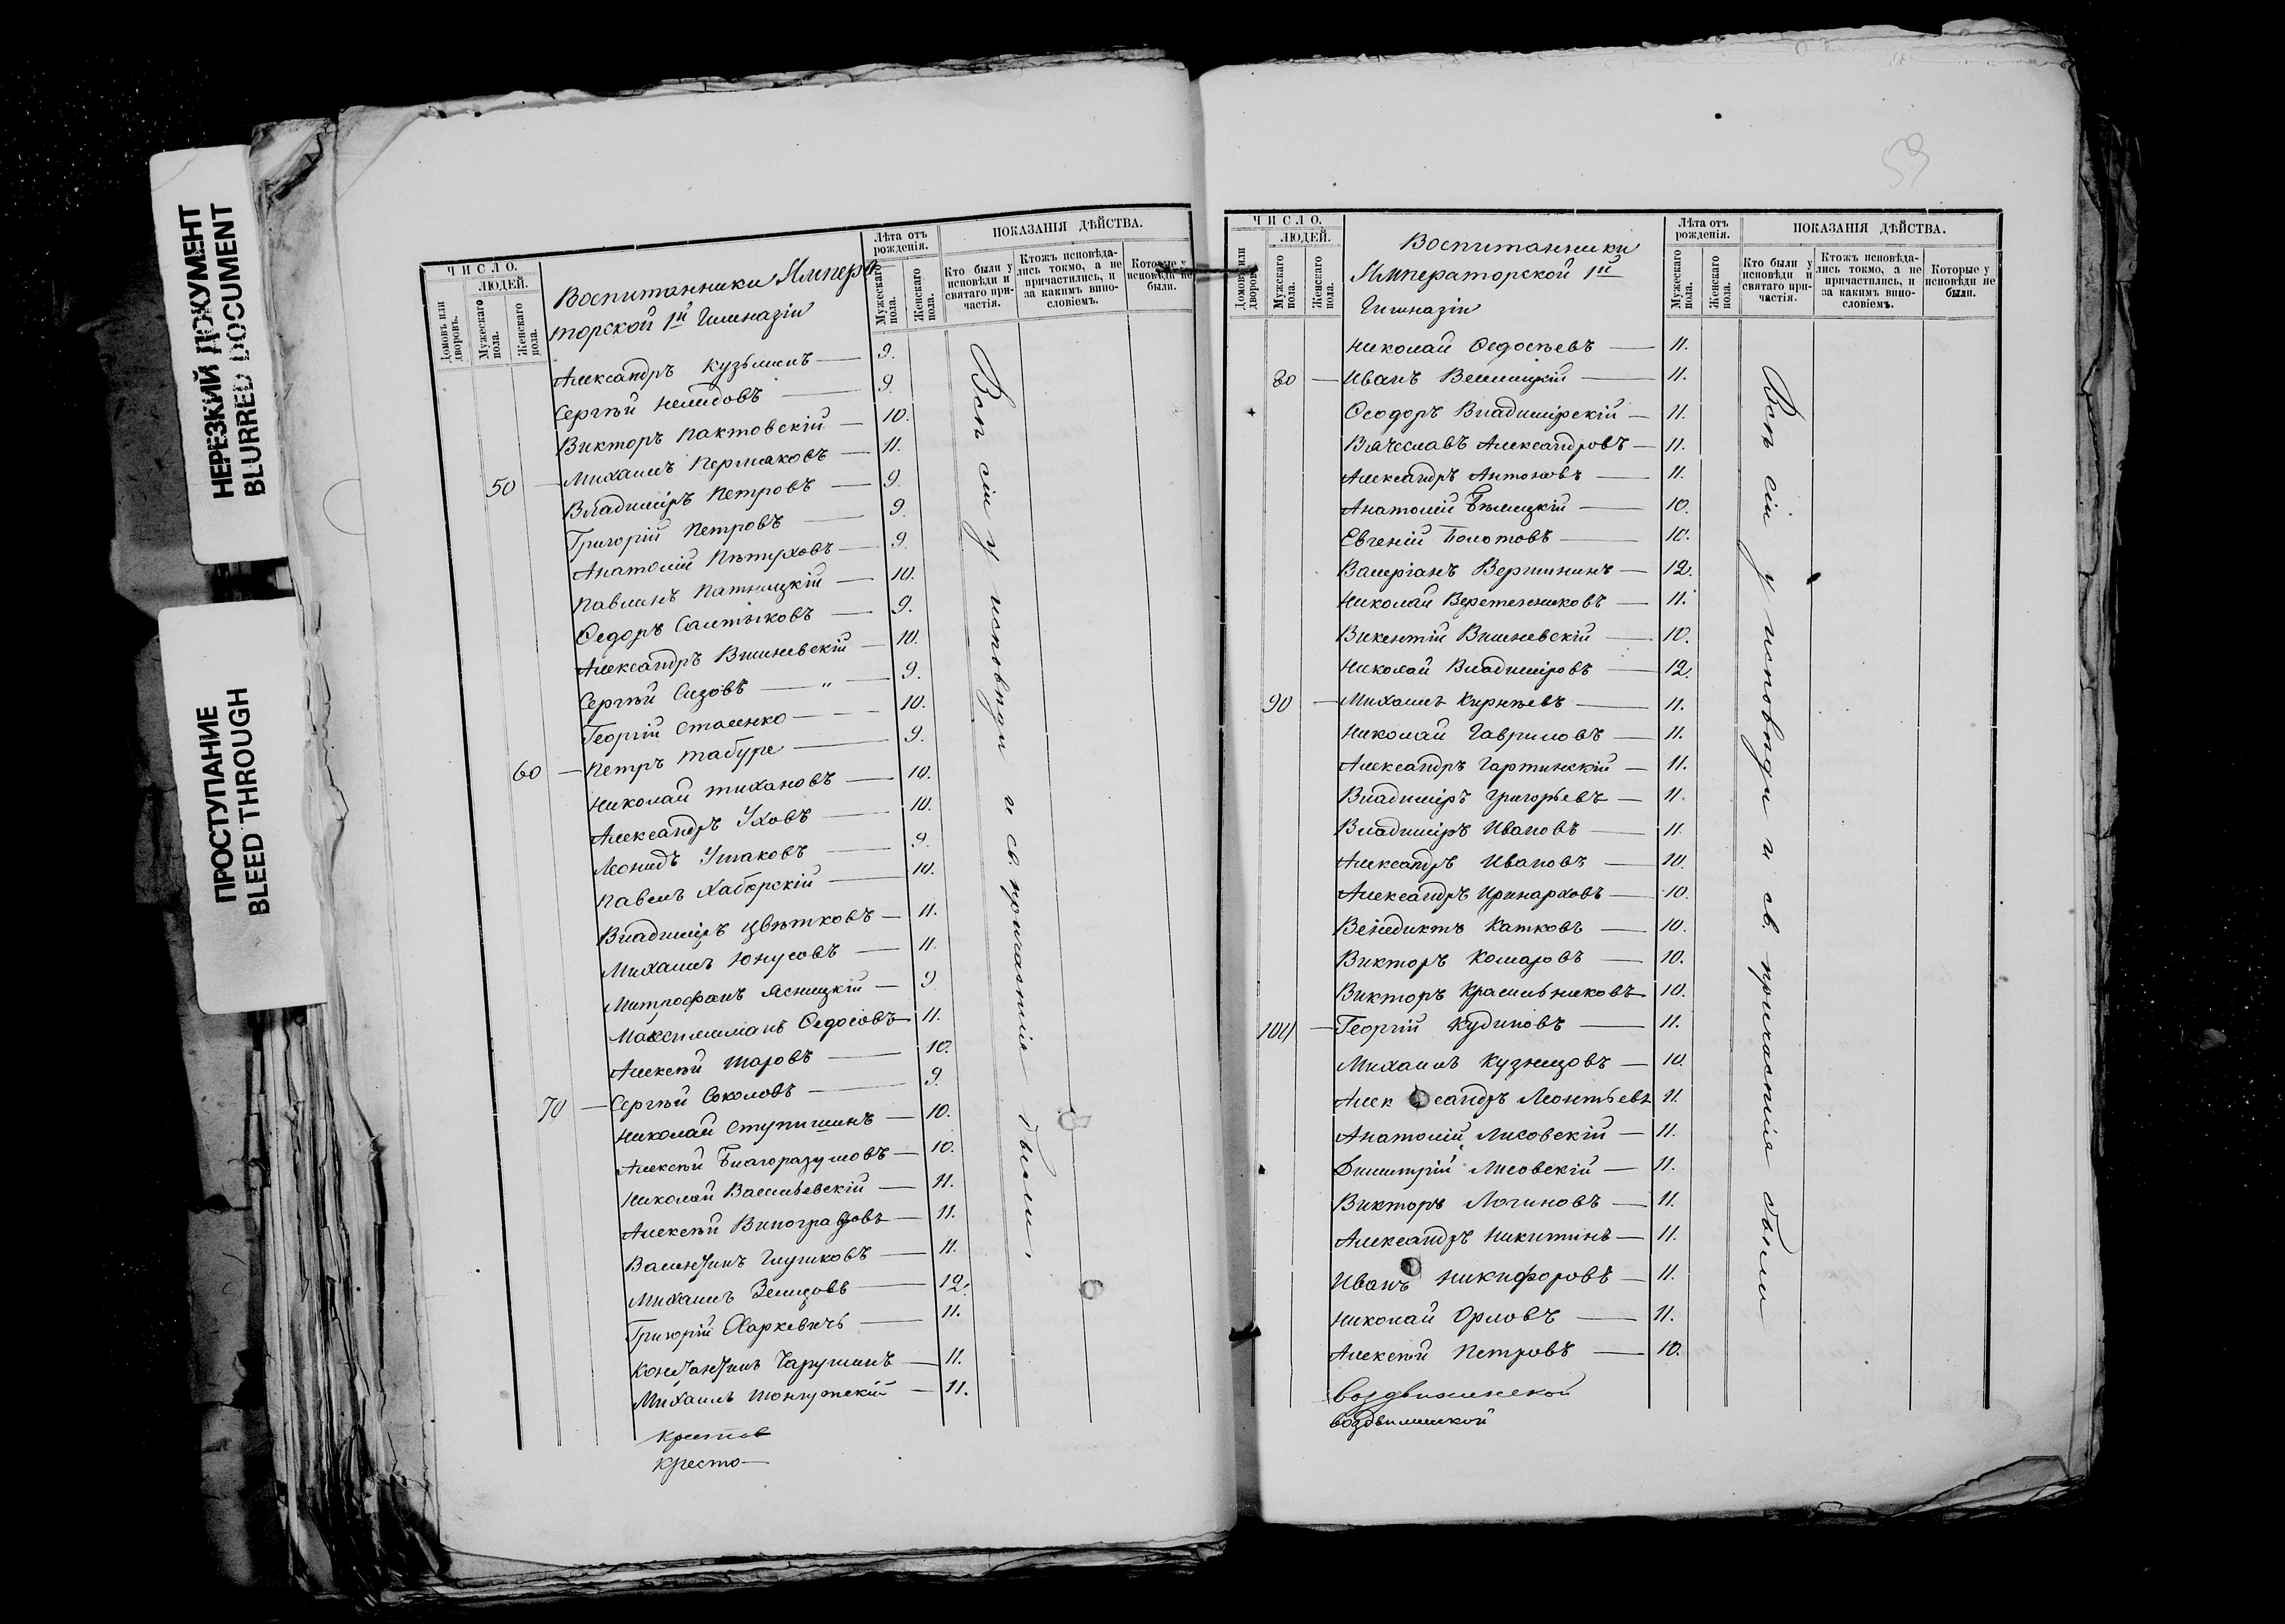 НЕРЕЗКИЙ ДОКУМЕНТ
BLURRED DOCUMENT
ПРОСТУПАНИЕ
BLEED THROUGH
ЧИСЛО.
ЛЮДЕЙ.
Домовъ или дворовъ.
Мужескаго пола.
Женскаго пола.
Воспитанники Импера
торской 1й Гимназіи
Лѣта отъ рожденія.
Мужескаго пола.
Женскаго пола.
ПОКАЗАНІЯ ДѢЙСТВА.
Кто были у исповѣди и святаго причастія.
Ктожъ исповѣдались токмо, а не причастились, и за какимъ винословіемъ.
Которые у исповѣди не были.
Александръ Кузьминъ — 9.
Сергѣй Нелидовъ — 9.
Викторъ Пактовскій — 10.
50 — Михаилъ Пермяковъ — 11.
Владиміръ Петровъ — 9.
Григорій Петровъ — 9.
Анатолій Пѣтуховъ — 9.
Павлинъ Пятницкій — 10.
Ѳедоръ Салтыковъ — 9.
Александръ Вишневскій — 10.
Сергѣй Сизовъ — „ — 9.
Георгій Сталенко — 10.
60 — Петръ Табуре — 9.
Николай Тихановъ — 10.
Александръ Уховъ — 10.
Леонидъ Ушаковъ — 9.
Павелъ Хаборскій — 10.
Владиміръ Цвѣтковъ — 11.
Михаилъ Юнусовъ — 11.
Митрофанъ Ясницкій — 9
Максимиліанъ Ѳедосовъ 11.
Алексѣй Шаровъ — 10.
70 — Сергѣй Соколовъ — 9.
Николай Ступишинъ — 10.
Алексѣй Благоразумовъ — 10.
Николай Васильевскій — 11.
Алексѣй Виноградовъ — 11.
Валентинъ Глушковъ — 11.
Михаилъ Земцовъ — 12.
Григорій Харкевичъ — 11.
Константинъ Чарушинъ — 11.
Михаилъ — 11.
Кресто—
Всѣ сіи у исповѣди и св. причастія были.
59
ЧИСЛО.
ЛЮДЕЙ.
Домовъ или дворовъ.
Мужескаго пола.
Женскаго пола.
Воспитанники
Императорской 1й
Гимназіи
Лѣта отъ рожденія.
Мужескаго пола.
Женскаго пола.
ПОКАЗАНІЯ ДѢЙСТВА.
Кто были у исповѣди и святаго причастія.
Ктожъ исповѣдались токмо, а не причастились, и за какимъ винословіемъ.
Которые у исповѣди не были.
Николай Ѳедосѣевъ — 11.
80 — Иванъ — 11.
Ѳеодоръ Владимірскій — 11.
Вячеславъ Александровъ — 11.
Александръ Антоновъ — 11.
Анатолій Бѣлицкій — 10.
Евгеній Болотовъ — 10.
Валеріанъ Вершининъ — 12.
Николай Веретенниковъ — 11.
Викентій Вишневскій — 10.
Николай Владиміровъ — 12.
90 — Михаилъ Кирѣевъ — 11.
Николай Гавриловъ — 11.
Александръ Гартинскій — 11.
Владиміръ Григорьевъ — 11.
Владиміръ Ивановъ — 11.
Александръ Ивановъ — 10.
Александръ Иринарховъ — 10.
Венедиктъ Катковъ — 10.
Викторъ Комаровъ — 10.
Викторъ Красильниковъ 10.
100 — Георгій Кудиновъ — 11.
Михаилъ Кузнецовъ — 10.
Александръ Леонтьевъ 11.
Анатолій Лисовскій — 11.
Димитрій Лисовскій — 11.
Викторъ Логиновъ — 11.
Александръ Никитинъ — 11.
Иванъ Никифоровъ — 11.
Николай Орловъ — 11.
Алексѣй Петровъ — 10.
Воздвиженской
воздвиженской
Всѣ сіи у исповѣди и св. причастія были